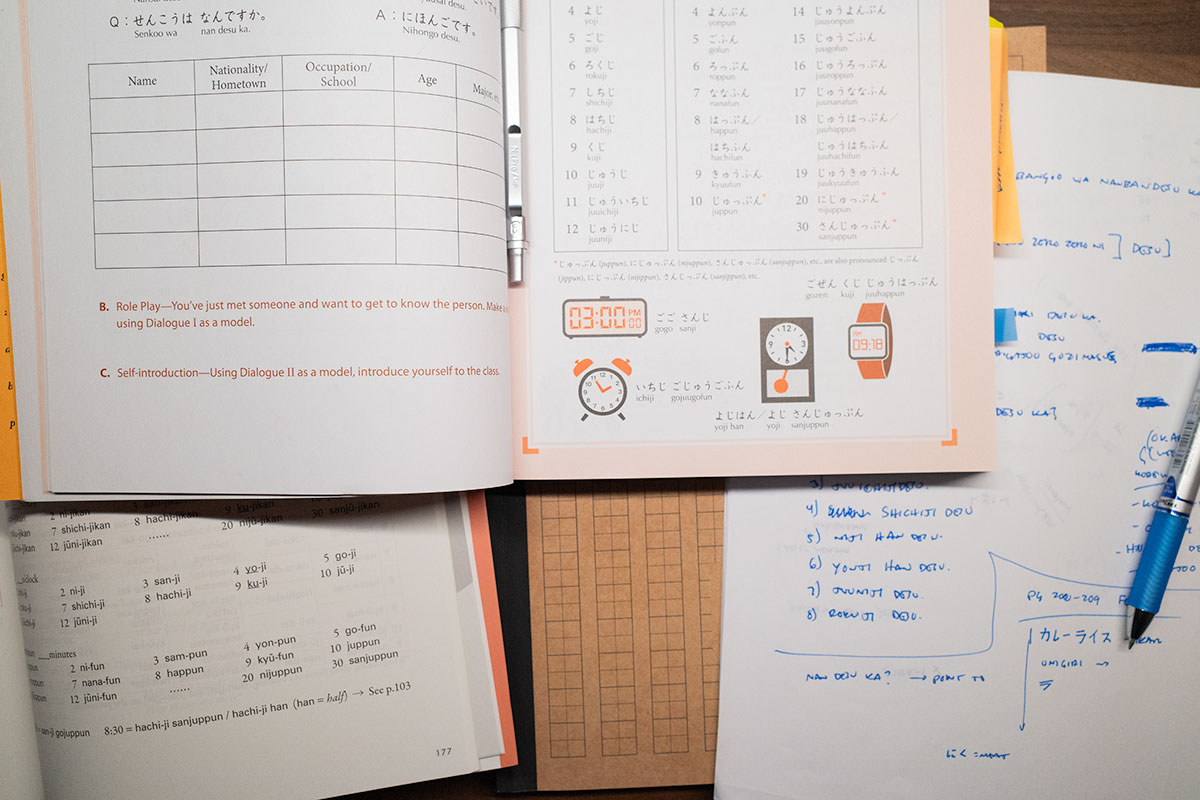 Q：せんこうは なんですか。
Senkoo wa nan desu ka.
A：にほんごです。
Nihongo desu.
Name
Nationality/
Hometown
Occupation/
School
Age
Major,
B. Role Play—You've just met someone and want to get to know the person. Make a
using Dialogue I as a model.
C. Self-introduction—Using Dialogue II as a model, introduce yourself to the class.
4 よじ
yoji
5 ごじ
goji
6 ろくじ
rokuji
7 しちじ
shichiji
8 はちじ
hachiji
9 くじ
kuji
10 じゅうじ
juuji
11 じゅういちじ
juuichiji
12 じゅうにじ
juuniji
4 よんぷん
yonpun
5 ごふん
gofun
6 ろっぷん
roppun
7 ななふん
nanafun
8 はっぷん／
happun
はちふん
hachifun
9 きゅうふん
kyuufun
10 じゅっぷん*
juppun
14 じゅうよんぷん
juuyonpun
15 じゅうごふん
juugofun
16 じゅうろっぷん
juuroppun
17 じゅうななふん
juunanafun
18 じゅうはっぷん／
juuhappun
じゅうはちふん
juuhachifun
19 じゅうきゅうふん
juukyuufun
20 にじゅっぷん*
nijuppun
30 さんじゅっぷん*
sanjuppun
*じゅっぷん (juppun), にじゅっぷん (nijuppun), さんじゅっぷん (sanjuppun), etc., are also pronounced じっぷん
(jippun), にじっぷん (nijippun), さんじっぷん (sanjippun), etc.
03:00 PM 00
ごご さんじ
gogo sanji
ごぜん くじ じゅうはっぷん
gozen kuji juuhappun
09:18
いちじ ごじゅうごふん
ichiji gojuugofun
よじはん／よじ さんじゅっぷん
yoji han yoji sanjuppun
2 ni-jikan
7 shichi-jikan
8 hachi-jikan
9 ku-jikan
12 jūni-jikan
......
20 nijū-jikan
30 sanjū-jikan
2 ni-ji
3 san-ji
4 yo-ji
5 go-ji
7 shichi-ji
8 hachi-ji
9 ku-ji
10 jū-ji
12 jūni-ji
__minutes
2 ni-fun
3 sam-pun
4 yon-pun
5 go-fun
7 nana-fun
8 happun
9 kyū-fun
10 juppun
12 jūni-fun
......
20 nijuppun
30 sanjuppun
gojuppun 8:30 = hachi-ji sanjuppun / hachi-ji han (han = half) → See p.103
177
BANGOO WA NANBAN DESU KA
ZERO ZERO NI ] DESU]
DESU KA.
DESU
DESU KA?
4) SHICHIJI DESU
5) HAN DESU.
6) YONJI HAN DESU.
7) JUUNIJI DESU.
8) ROKUJI DESU.
NAN DESU KA? → POINT TO
PG 200-209
カレーライス
ONIGIRI →